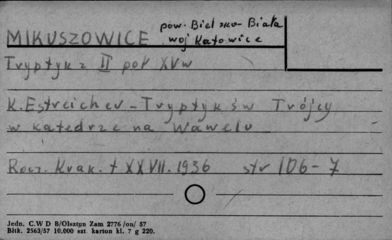 pow. Bielsko-Biała
MIKUSZOWICE woj Katowice
Tryptyk z II poł XVw
K. Estreicher - Tryptyk św Trójcy
w katedrze na Wawelu
Rocz. Krak. t XXVII. 1936 str 106-7
Jedn. C.W D 8/Olsztyn Zam 2776/on/ 57
Bitk. 2563/57 10.000 szt. karton kl. 7 g 220.